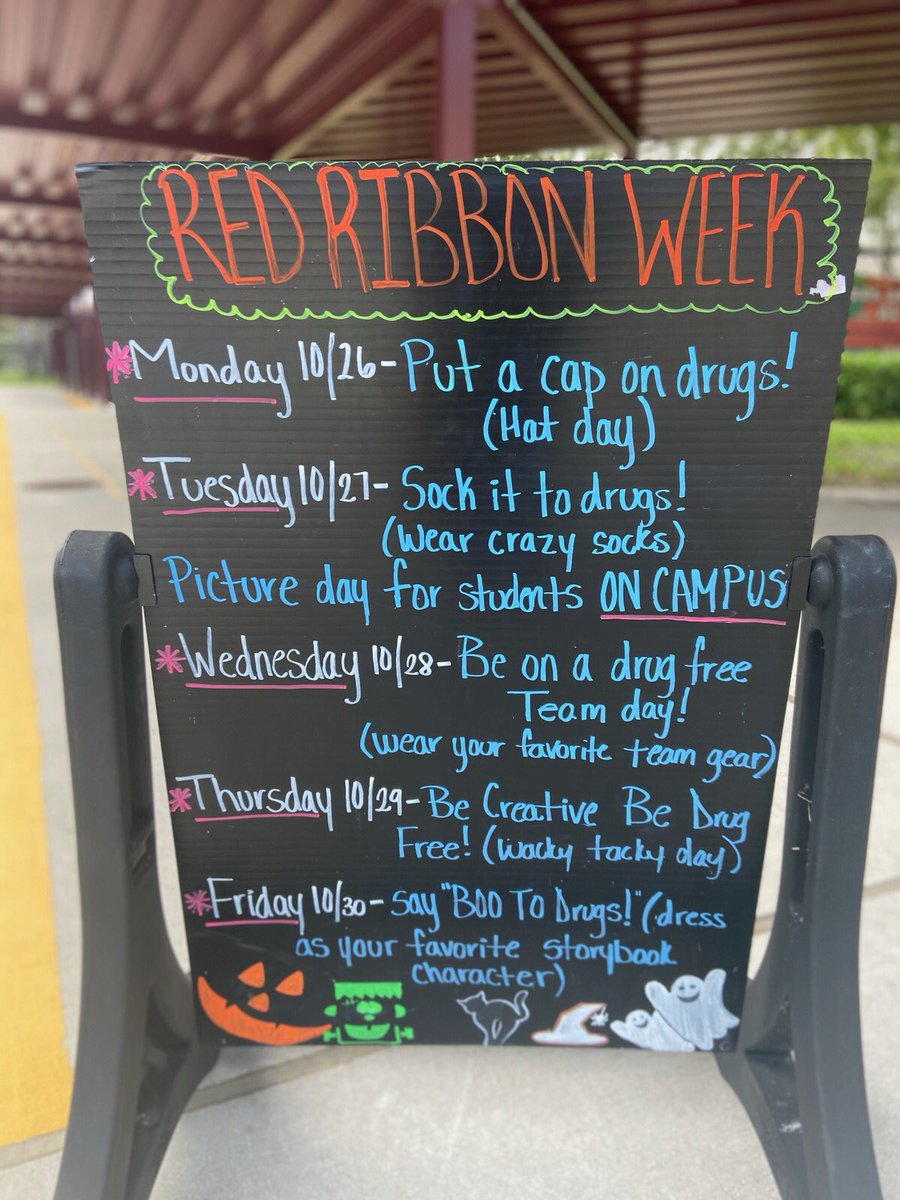 RED RIBBON WEEK
*Monday 10/26- Put a cap on drugs!
(Hat day)
*Tuesday 10/27- Sock it to drugs!
(Wear crazy socks)
Picture day for students ON CAMPUS
*Wednesday 10/28- Be on a drug free
Team day!
(wear your favorite team gear)
*Thursday 10/29- Be Creative Be Drug
Free! (wacky tacky day)
*Friday 10/30- say "BOO TO Drugs!" (dress
as your favorite storybook
character)